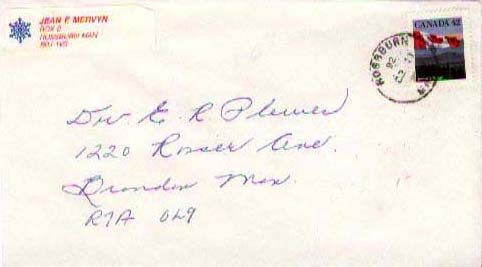 JEAN P. MERVYN
BOX 2
ROSSBURN MAN
R0J 1V0
CANADA 42
ROSSBURN
92
Dr. E R Plewes
1220 Rosser Ave.
Brandon Man.
R7A 0L9